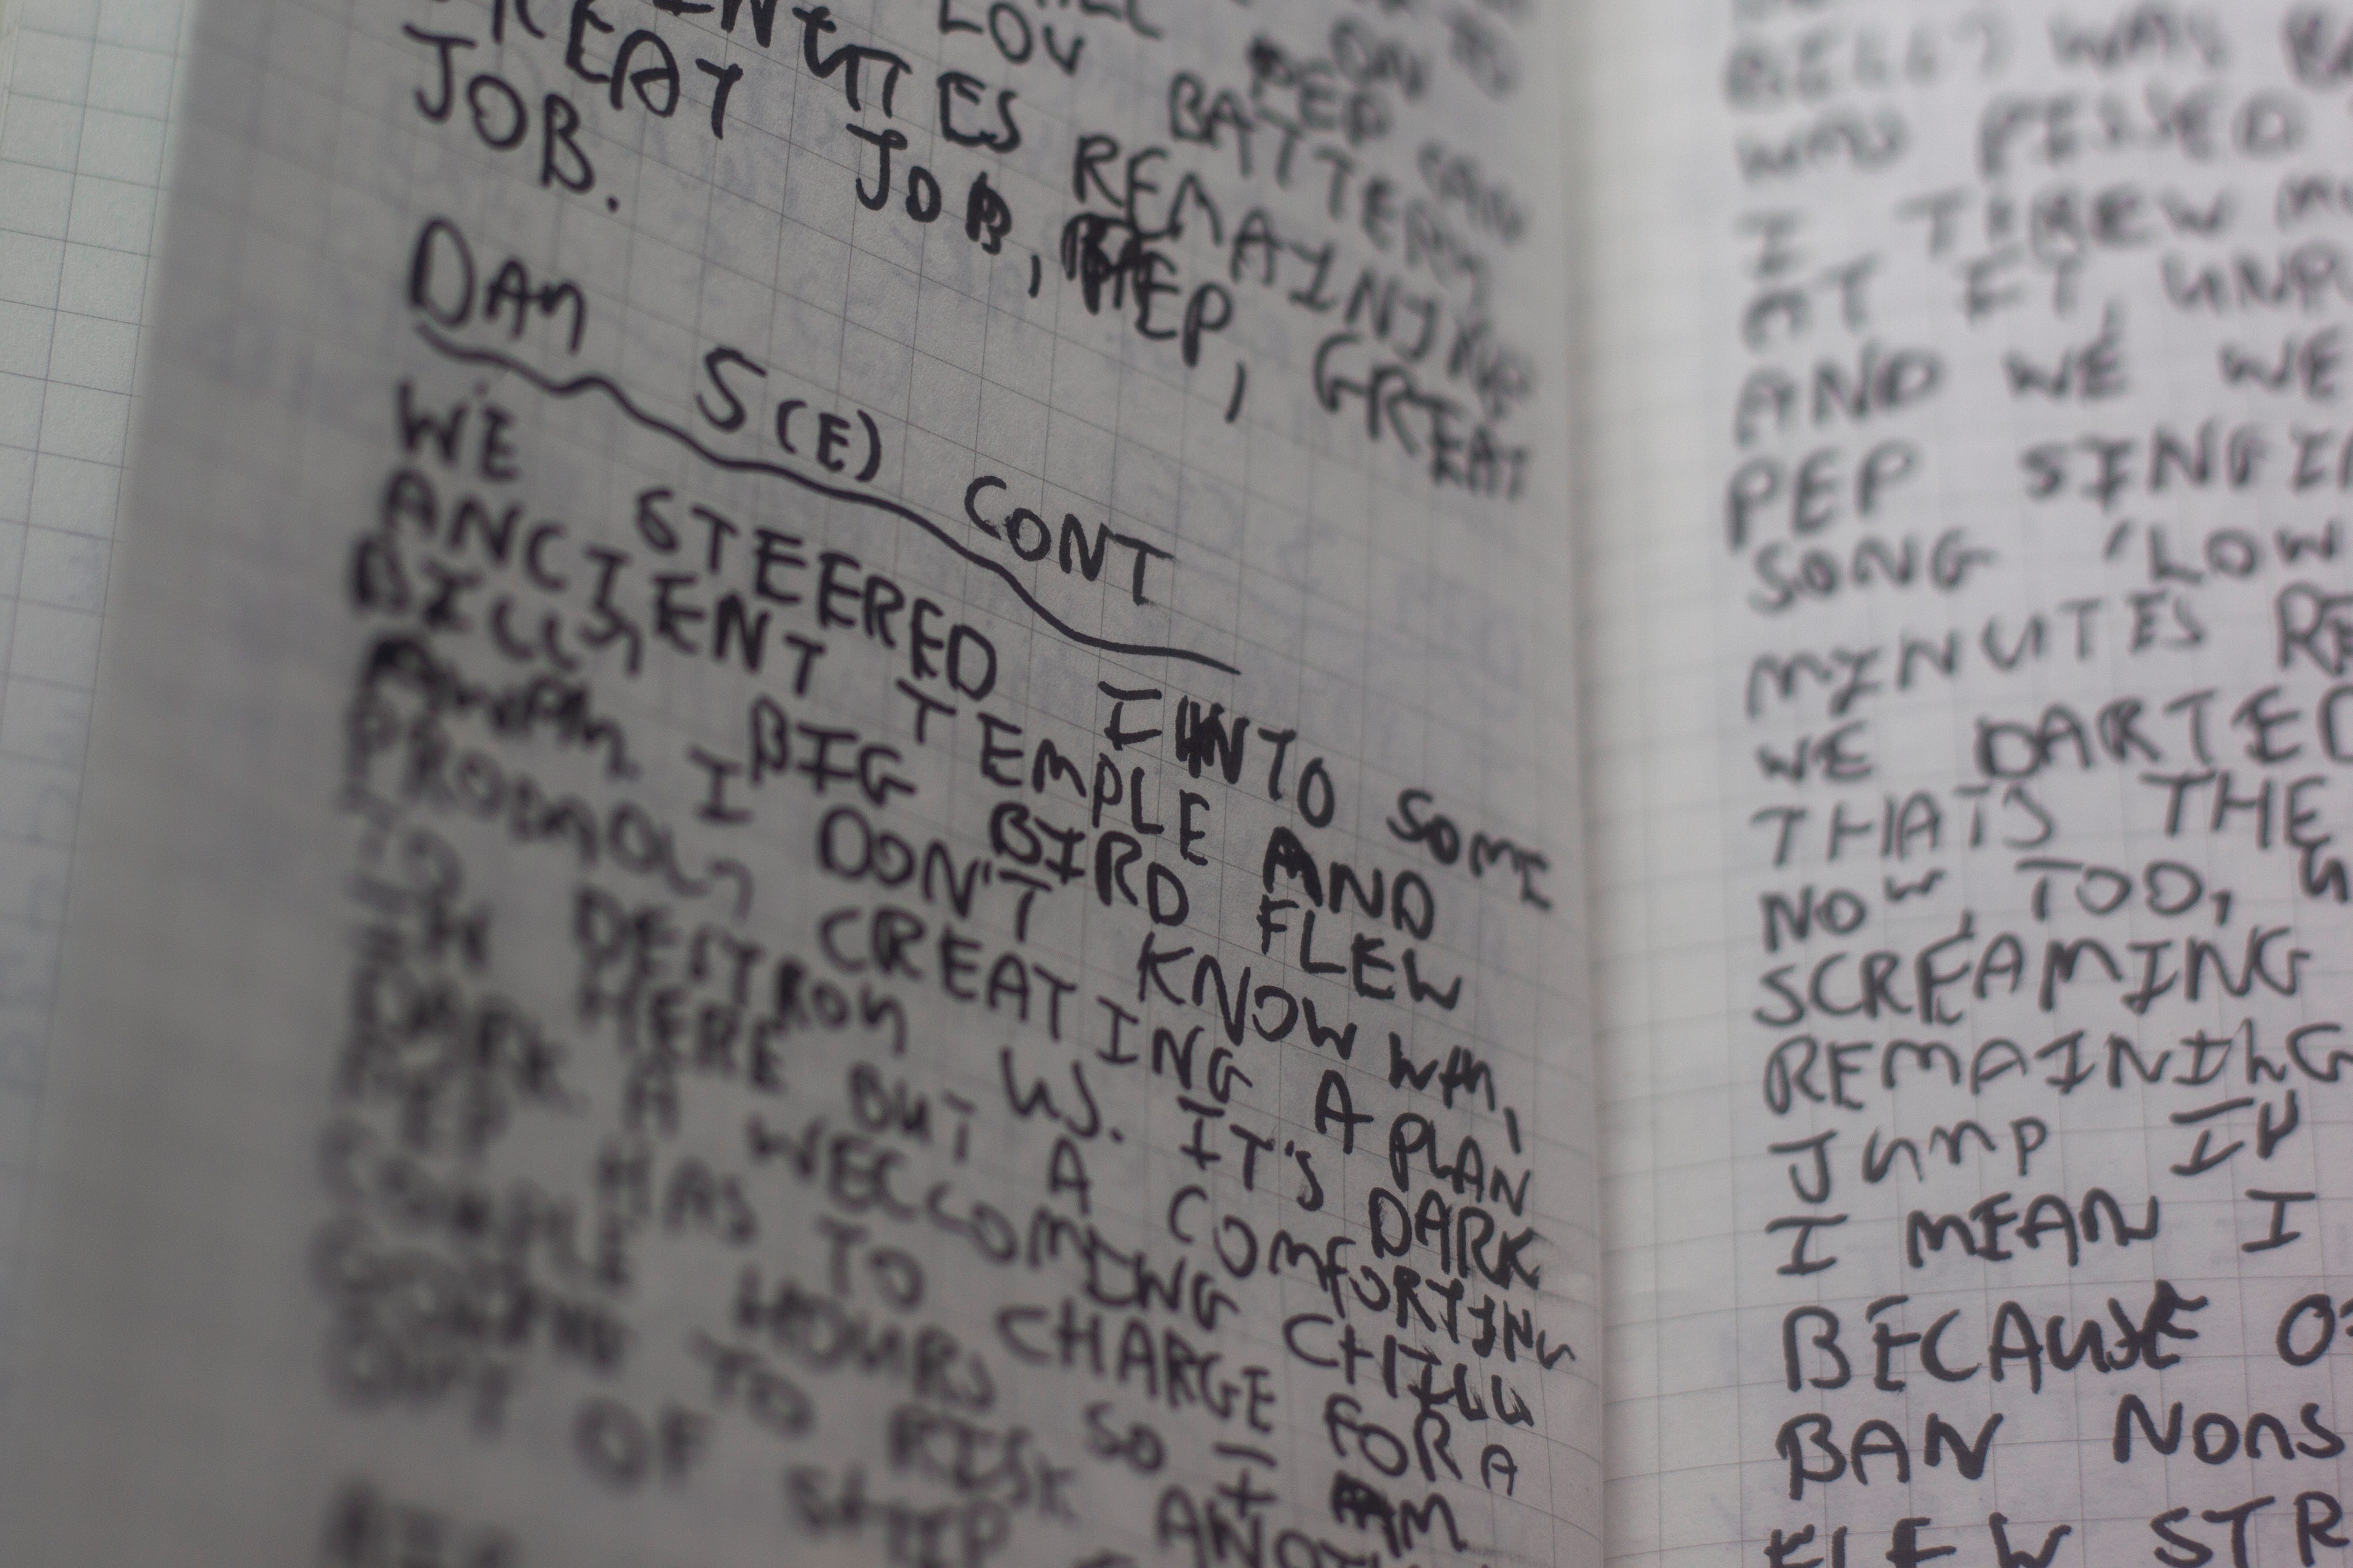 LOW BATTERY
MINUTES REMAINING
GREAT JOB, PEP, GREAT
JOB.
DAY 5(E) CONT
WE STEERED INTO SOME
ANCIENT TEMPLE AND
BILLY BIG BIRD FLEW
AWAY. I DON'T KNOW WHY,
PROBABLY CREATING A PLAN
TO DESTROY US. IT'S DARK
IN HERE BUT A COMFORTING
DARK. A WELCOMING CHILL
PEP HAS TO CHARGE FOR A
COUPLE HOURS SO I AM
GOING TO RISK
OUT OF SHIP
BELLY WAS
WAS PISSED
I THREW
AT IT,
AND WE WE
PEP SINGI
SONG 'LOW
MINUTES RE
WE DARTED
THATS THE
NOW, TOO,
SCREAMING
REMAINING
JUMP IN
I MEAN I
BECAUSE OF
BAN NONS
FLEW STR